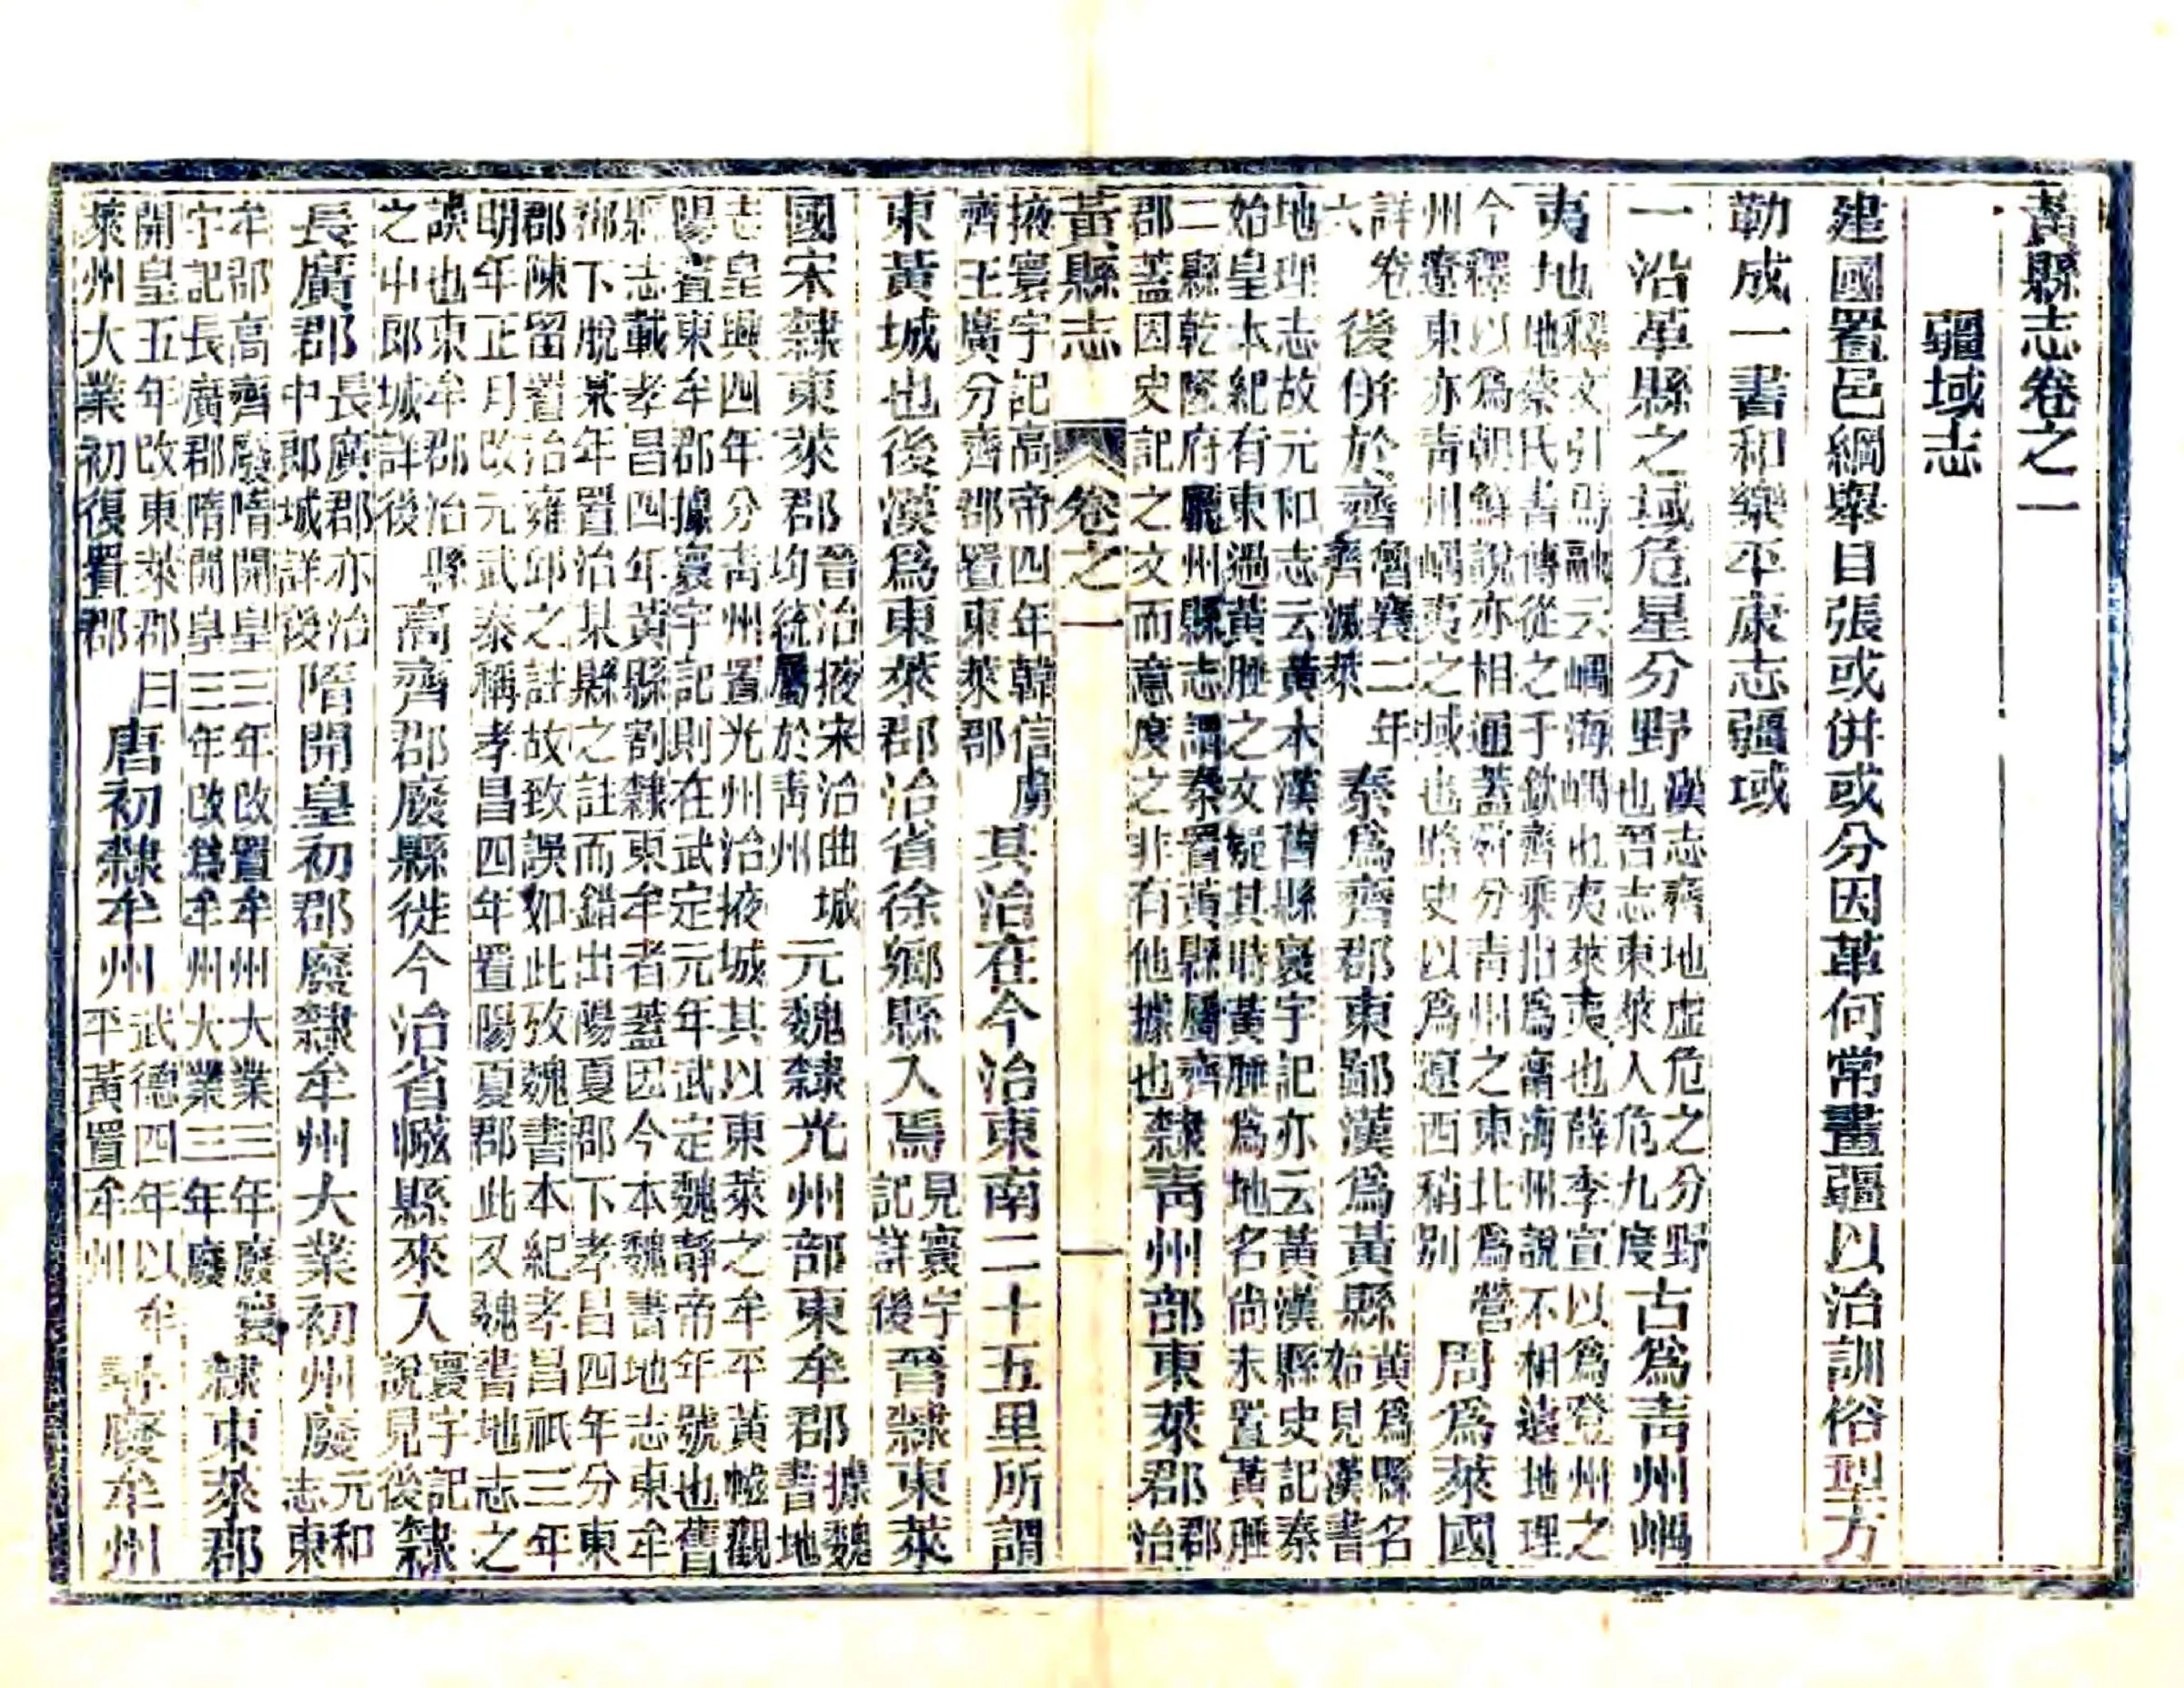 黃縣志卷之一
疆域志
建國置邑綱舉目張或併或分因革何常畫疆以治訓俗型方
勒成一書和樂平康志疆域
一沿革縣之域危星分野漢志齊地虛危之分野也晉志東萊入危九度古為青州嵎
夷地釋文引馬融云嵎海嵎也夷萊夷也薛季宣以為登州之地蔡氏書傳從之于欽齊乘指為甯海州說不相遠地理
今釋以為朝鮮說亦相通蓋舜分青州之東北為營州遼東亦青州嵎夷之域也路史以為遼西稍別周為萊國
詳卷六後併於齊魯襄二年齊滅萊秦為齊郡東鄙漢為黃縣黃為縣名始見漢書
地理志故元和志云黃本漢舊縣寰宇記亦云黃漢縣史記秦始皇本紀有東過黃腄之文疑其時黃腄為地名尚未置黃腄
二縣乾隆府廳州縣志謂秦置黃縣屬齊郡蓋因史記之文而意度之非有他據也隸青州部東萊郡郡治
黃縣志 卷之一 一
掖寰宇記高帝四年韓信虜齊王廣分齊郡置東萊郡其治在今治東南二十五里所謂
東黃城也後漢為東萊郡治省徐鄉縣入焉見寰宇記詳後晉隸東萊
國宋隸東萊郡晉治掖宋治曲城均統屬於青州元魏隸光州部東牟郡據魏書地
志皇興四年分青州置光州治掖城其以東萊之牟平黃㡉觀陽置東牟郡據寰宇記則在武定元年武定魏靜帝年號也舊
縣志載孝昌四年黃縣割隸東牟者蓋因今本魏書地志東牟郡下脫某年置治某縣之註而錯出陽夏郡下孝昌四年分東
郡陳留置治雍邱之註故致誤如此攷魏書本紀孝昌祇三年明年正月改元武泰稱孝昌四年置陽夏郡此又魏書地志之
誤也東牟郡治縣之中郎城詳後高齊郡廢縣徙今治省㡉縣來入寰宇記說見後隸
長廣郡長廣郡亦治中郎城詳後隋開皇初郡廢隸牟州大業初州廢元和志東
牟郡高齊廢隋開皇三年改置牟州大業三年廢寰宇記長廣郡隋開皇三年改為牟州大業三年廢隸東萊郡
開皇五年改東萊郡曰萊州大業初復置郡唐初隸牟州武德四年以牟平黃置牟州尋廢牟州